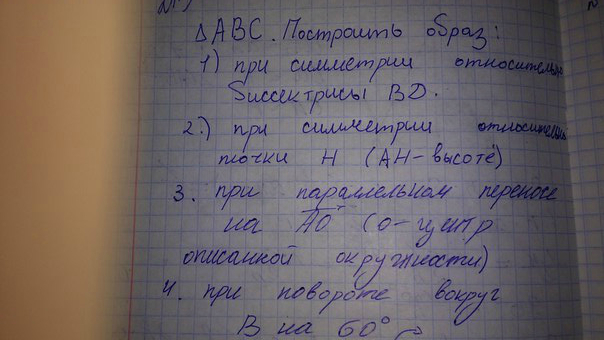 ΔABC. Построить образ:
1) при симметрии относительно
биссектрисы BD.
2.) при симметрии относительно
точки H (AH-высота)
3. при параллельном переносе
на AO (O-центр
описанной окружности)
4. при повороте вокруг
B на 60°